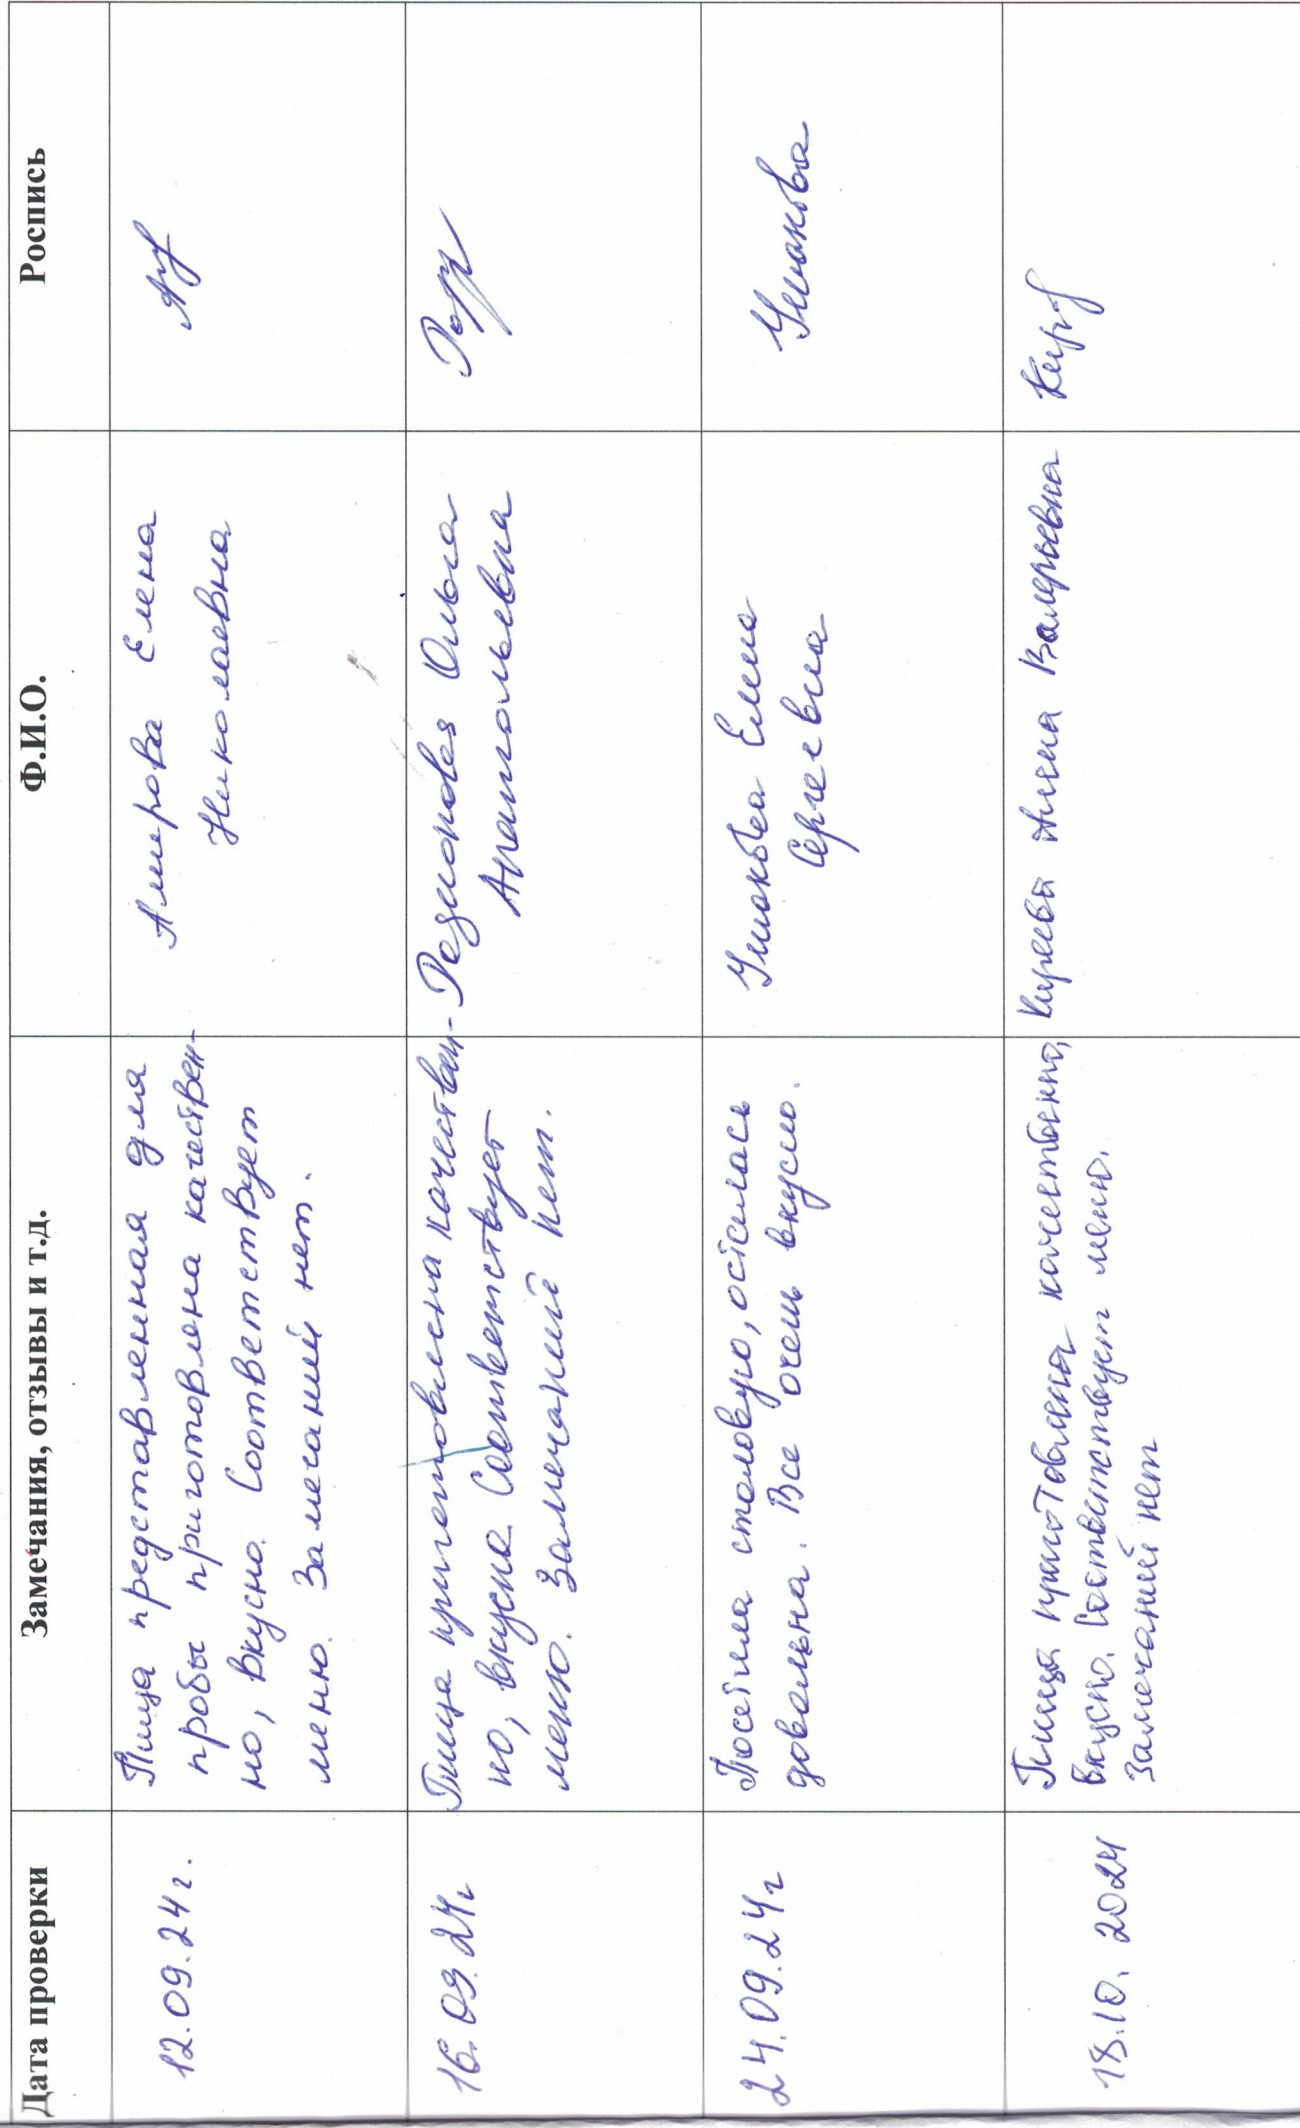 Дата проверки
Замечания, отзывы и т.д.
Ф.И.О.
Роспись
12.09.24г.
Пища представленная для
пробы приготовлена качествен-
но, вкусно. Соответствует
меню. Замечаний нет.
Амирова Елена
Николаевна
16.09.24г
Пища приготовлена качествен-
но, вкусно. Соответствует
меню. Замечаний нет.
Ольга
Анатольевна
24.09.24г
Посетила столовую, осталась
довольна. Все очень вкусно.
Ушакова
Сергеевна
Ушакова
18.10.2024
Пища приготовлена качественно,
вкусно. Соответствует меню.
Замечаний нет
Киреева Алена Валерьевна